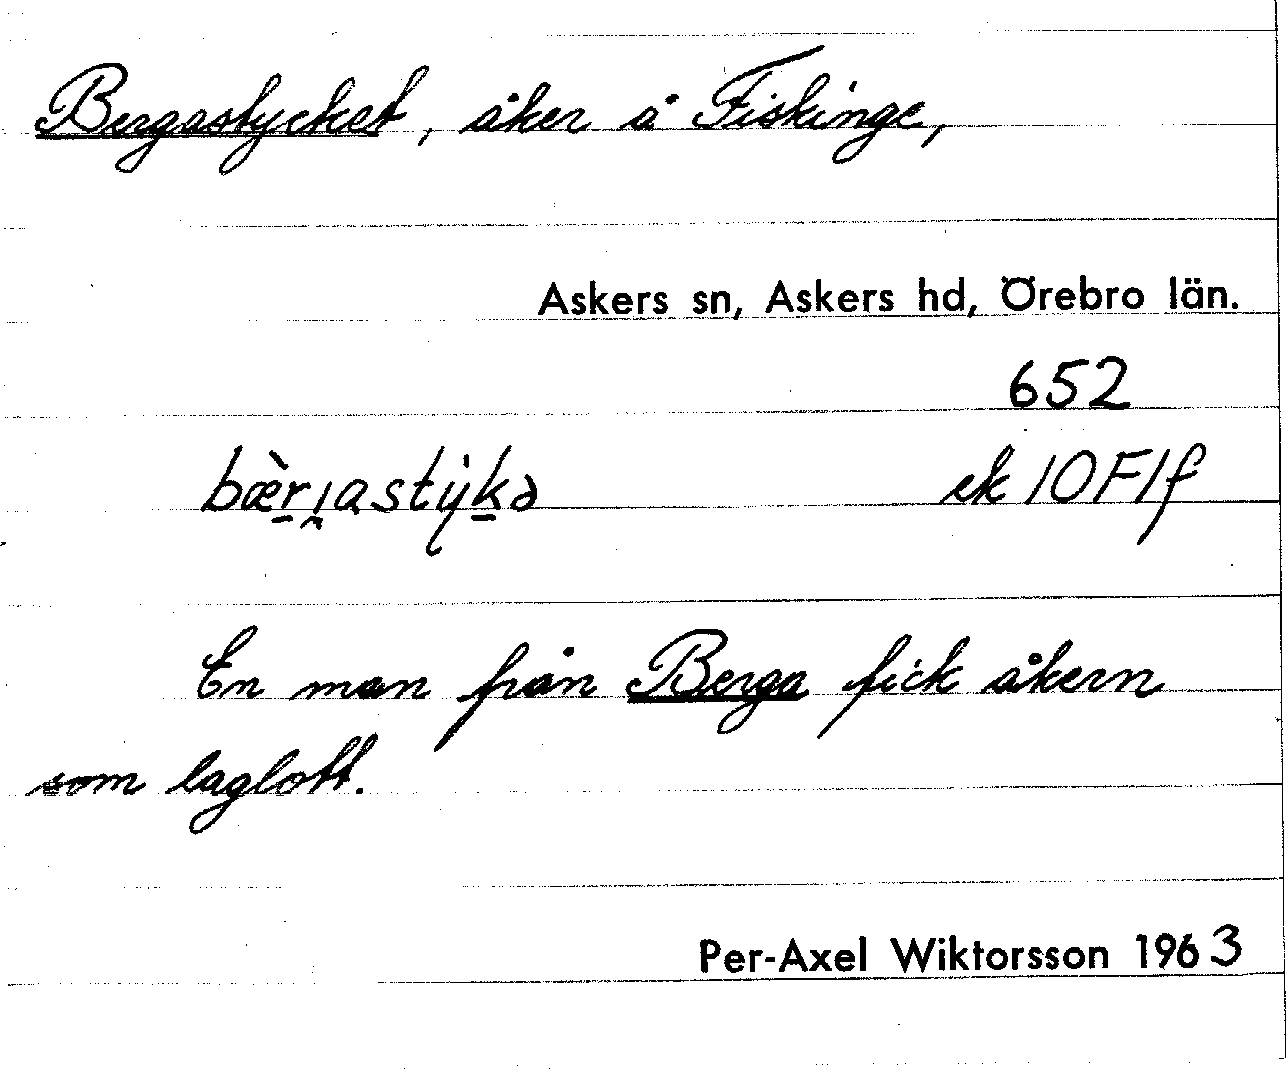 Bergastycket, åker å Fiskinge,
Askers sn, Askers hd, Örebro län.
652
bæ̀r̠ı̯astýk̠ə ek 10F1f
En man från Berga fick åkern
som laglott.
Per-Axel Wiktorsson 1963